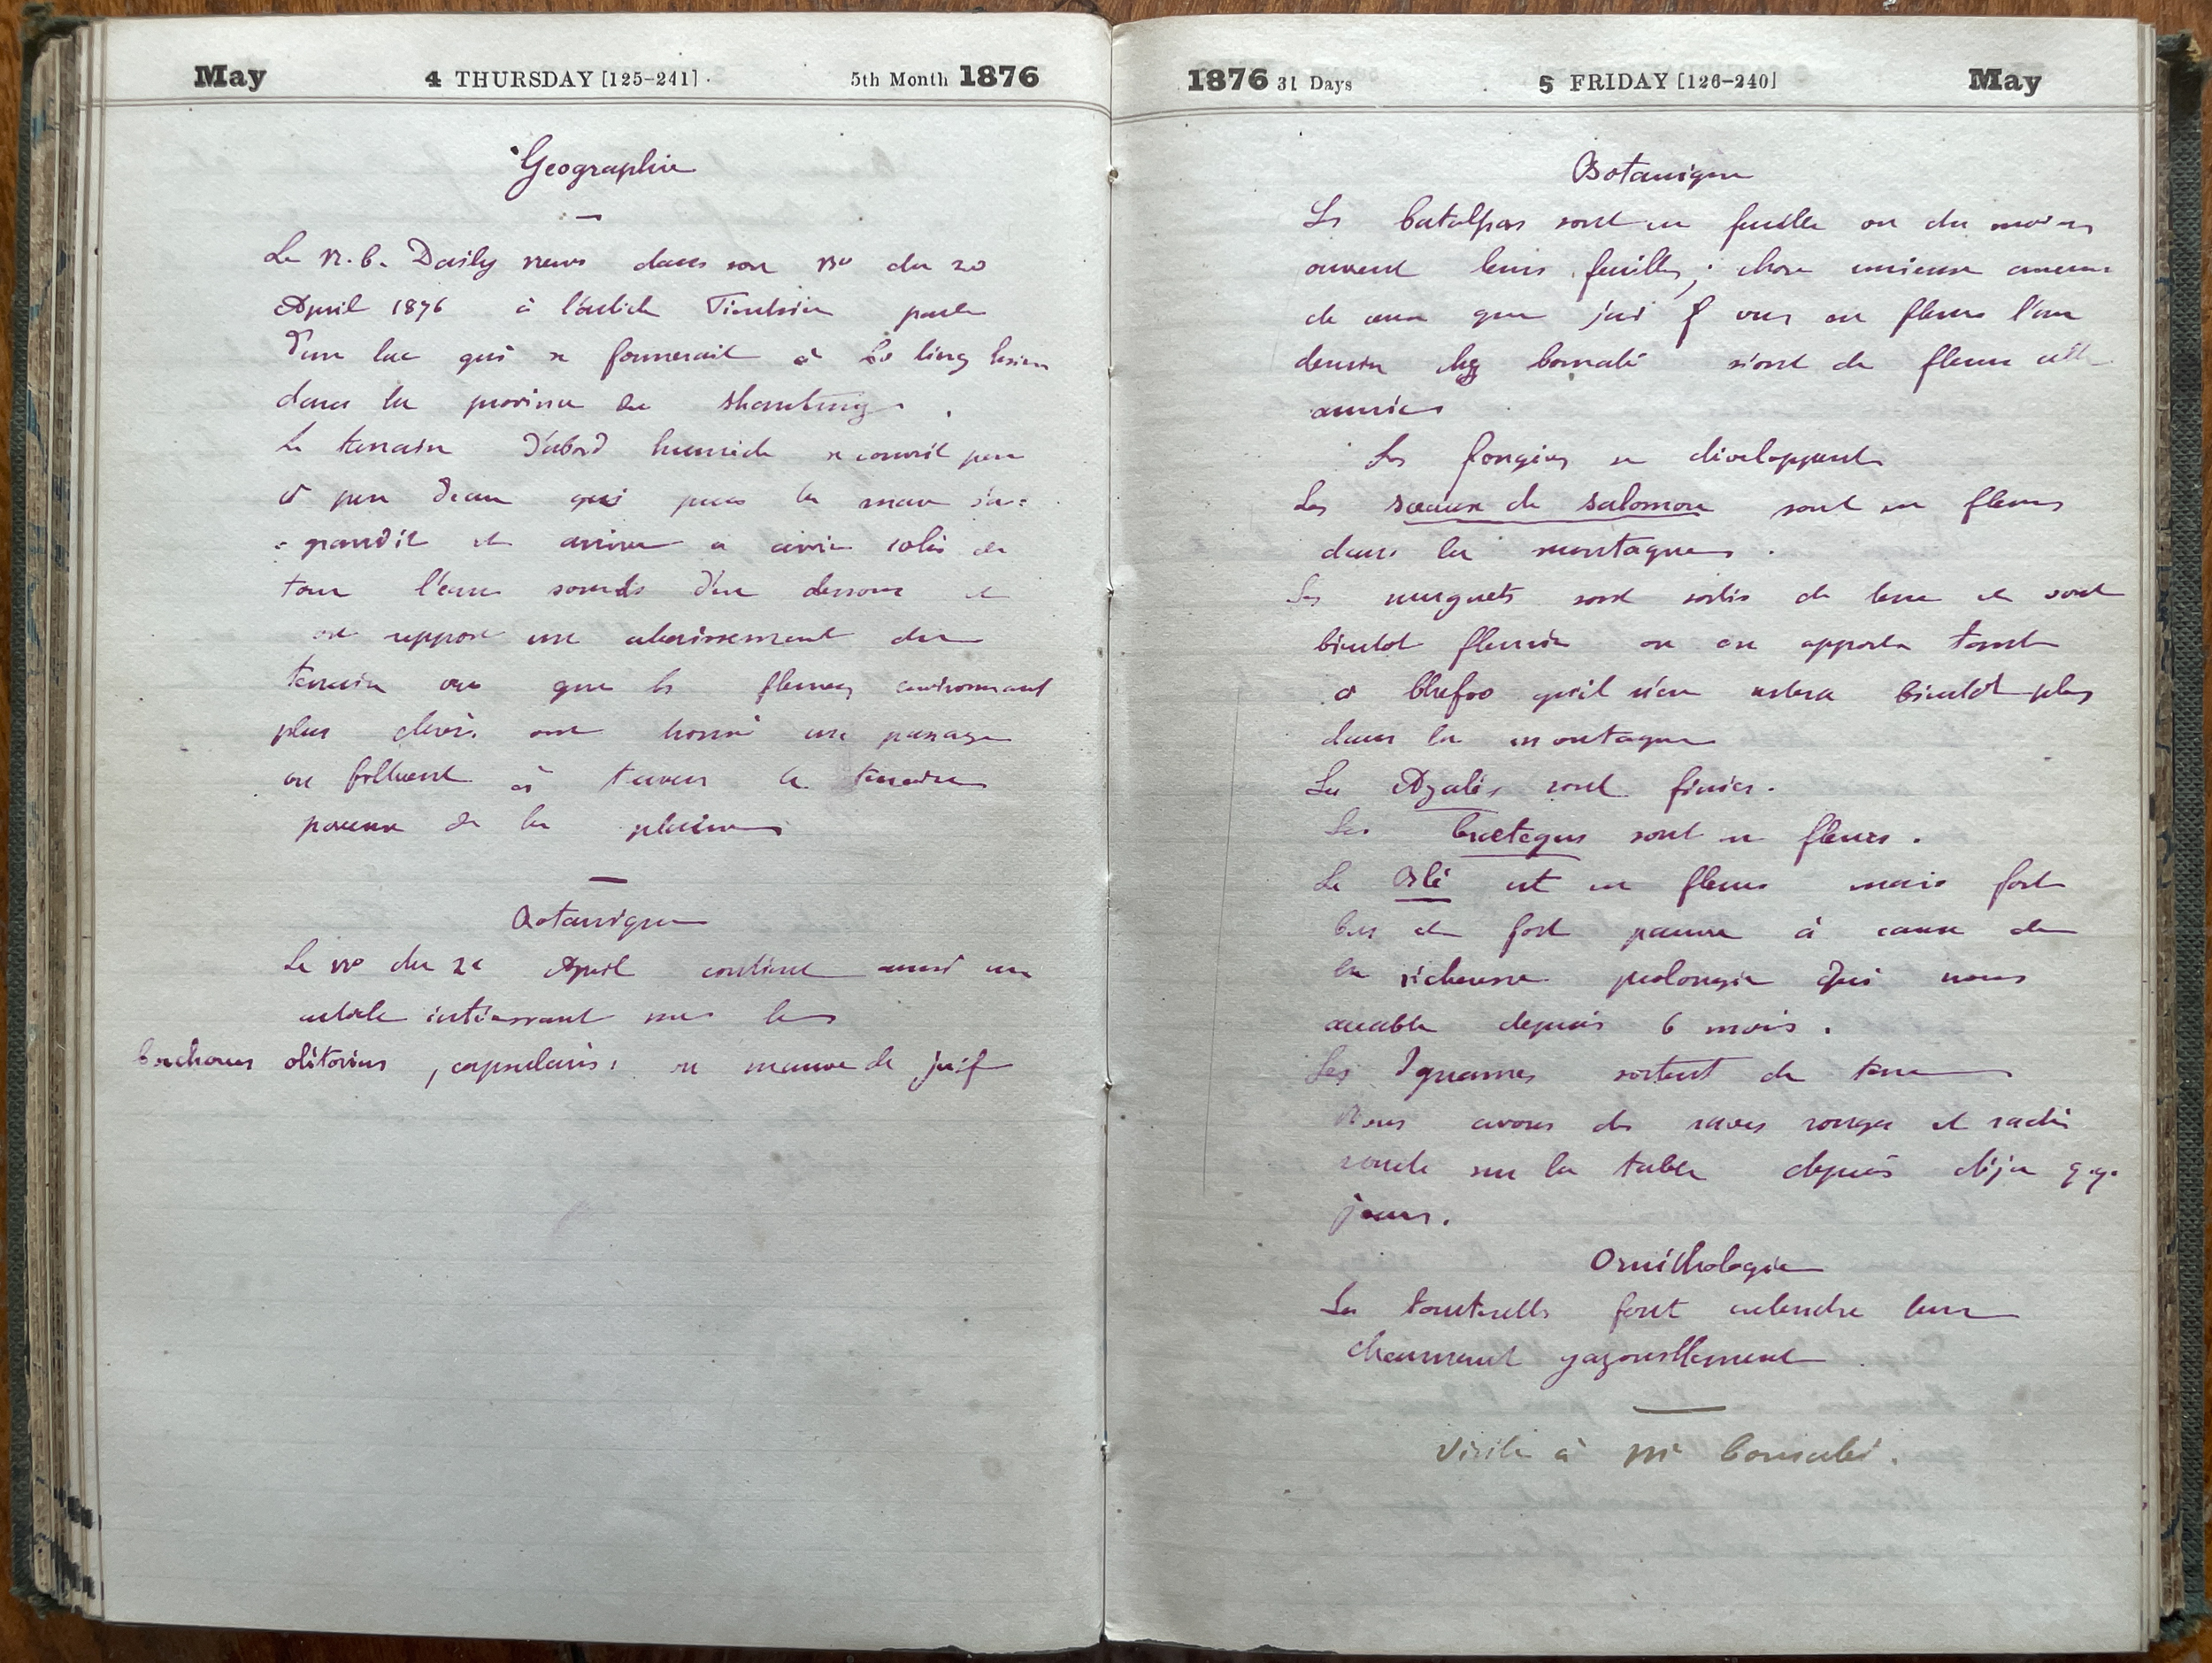 May 4 THURSDAY [125-241] 5th Month 1876
Geographie
Le N. C. Daily news dans son No du 20
April 1876 à l'article Tientsin parle
d'un lac qui se formerait à Lo ling hsien
dans la province du Shantung.
Le terrain d'abord humide se couvrit peu
à peu d'eau qui puis la mare s'a=
=grandit et arrive à
l'eau sourds d'en dessous et
on suppose un abaissement du
terrain ou que les fleuves environnant
plus élevés ont trouvé un passage
ou filtrent à travers le terrain
poreux de la plaine
Botanique
Le No du 26 April contient aussi un
article intéressant sur les
Corchorus olitorius, capsularis, ou mauve de juif
1876 31 Days 5 FRIDAY [126-240] May
Botanique
Les Catalpas sont en feuille ou du moins
ouvrent leurs feuilles; chose curieuse aucun
de ceux que j'ai vus en fleurs l'an
dernier chez n'ont de fleurs cette
année
Les fongies se développent
Les sceaux de salomon sont en fleurs
dans la montagne.
Les muguets sont sortis de terre et sont
bientot fleuris on en apporte tant
à Chefoo qu'il n'en restera bientôt plus
dans la montagne
Les Azalés sont finies.
Les Craetegus sont en fleurs.
Le Blé est en fleurs mais fort
bas et fort pauvre à cause de
la sécheresse prolongée qui nous
accable depuis 6 mois.
Les Ignames sortent de terre
Nous avons des raves rouges et radis
ronds sur la table depuis déja q.q.
jours.
Ornithologie
Les tourterelles font entendre leur
charmant gazouillement
Visite à Mr